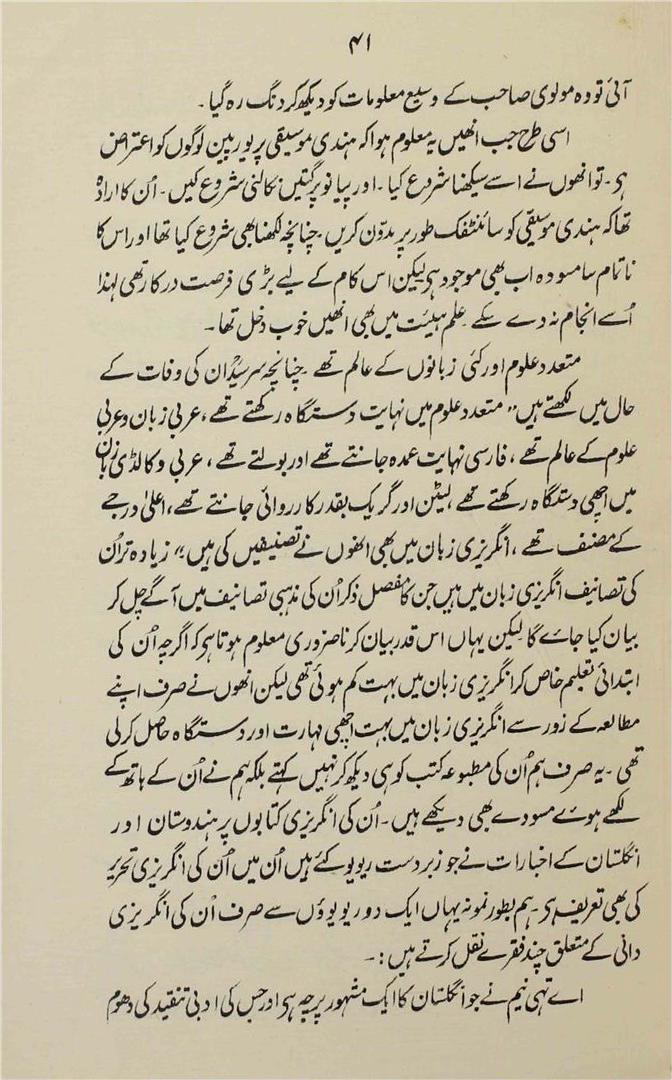 ۴۱
آئی تو وہ مولوی صاحب کے وسیع معلومات کو دیکھ کر دنگ رہ گیا۔
اسی طرح جب انھیں یہ معلوم ہوا کہ ہندی موسیقی پر یورپین لوگوں کو اعتراض
ہی۔ تو انھوں نے اسے سیکھنا شروع کیا۔ اور پیانو پر گتیں نکالنی شروع کیں۔ اُن کا ارادہ
تھا کہ ہندی موسیقی کو سائنٹفک طور پر مدوّن کریں۔ چنانچہ لکھنا بھی شروع کیا تھا اور اس کا
ناتمام سا مسودہ اب بھی موجود ہی لیکن اس کام کے لیے بڑی فرصت درکار تھی لہذا
اُسے انجام نہ دے سکے۔ علم ہیئت میں بھی انھیں خوب دخل تھا۔
متعدد علوم اور کئی زبانوں کے عالم تھے۔ چنانچہ سرسیدؒ ان کی وفات کے
حال میں لکھتے ہیں "متعدد علوم میں نہایت دستگاہ رکھتے تھے، عربی زبان و عربی
علوم کے عالم تھے، فارسی نہایت عمدہ جانتے تھے اور بولتے تھے، عربی و کالڈی زبان
میں اچھی دستگاہ رکھتے تھے، لیٹن اور گریک بقدر کارروائی جانتے تھے، اعلیٰ درجے
کے مصنف تھے، انگریزی زبان میں بھی انھوں نے تصنیفیں کی ہیں" زیادہ تر اُن
کی تصانیف انگریزی زبان میں ہیں جن کا مفصل ذکر اُن کی مذہبی تصانیف میں آگے چل کر
بیان کیا جائے گا لیکن یہاں اس قدر بیان کرنا ضروری معلوم ہوتا ہی کہ اگرچہ اُن کی
ابتدائی تعلیم خاص کر انگریزی زبان میں بہت کم ہوئی تھی لیکن انھوں نے صرف اپنے
مطالعہ کے زور سے انگریزی زبان میں بہت اچھی مہارت اور دستگاہ حاصل کر لی
تھی۔ یہ صرف ہم اُن کی مطبوعہ کتب کو ہی دیکھ کر نہیں کہتے بلکہ ہم نے اُن کے ہاتھ کے
لکھے ہوئے مسودے بھی دیکھے ہیں۔ اُن کی انگریزی کتابوں پر ہندوستان اور
انگلستان کے اخبارات نے جو زبردست ریویو کئے ہیں اُن میں اُن کی انگریزی تحریر
کی بھی تعریف ہی۔ ہم بطور نمونہ یہاں ایک دو ریویوؤں سے صرف اُن کی انگریزی
دانی کے متعلق چند فقرے نقل کرتے ہیں:۔
اے تہی نیم نے جو انگلستان کا ایک مشہور پرچہ ہی اور جس کی ادبی تنقید کی دھوم